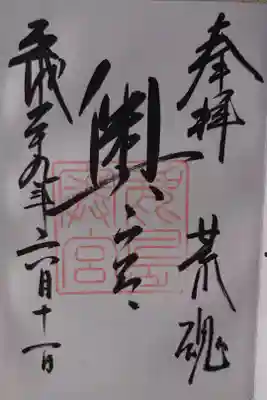 奉拝 荒魂
奥宮
平成二十九年六月十一日